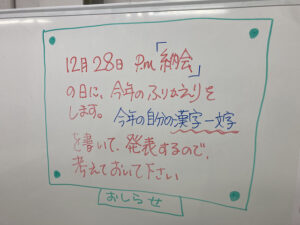 12月28日 P.m「納会」
の日に、今年のふりかえりを
します。今年の自分の漢字一文字
を書いて、発表するので、
考えておいて下さい
おしらせ